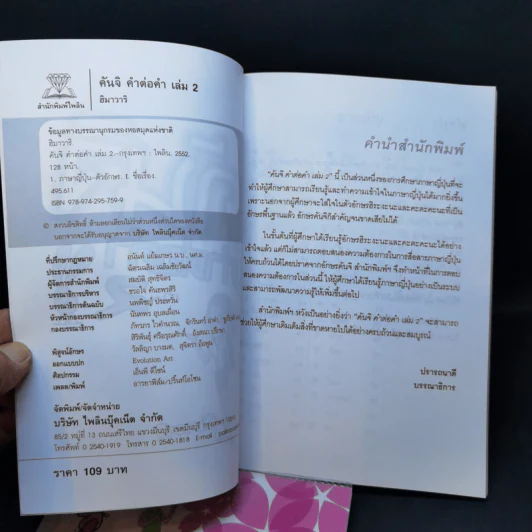 สำนักพิมพ์ไพลิน
คันจิ คำต่อคำ เล่ม 2
ฮิมาวาริ
ข้อมูลทางบรรณานุกรมของหอสมุดแห่งชาติ
ฮิมาวาริ
คันจิ คำต่อคำ เล่ม 2.--กรุงเทพฯ : ไพลิน, 2552.
128 หน้า.
1. ภาษาญี่ปุ่น--ตัวอักษร. I. ชื่อเรื่อง.
495.611
ISBN 978-974-295-759-9
© สงวนลิขสิทธิ์ ห้ามลอกเลียนไม่ว่าส่วนหนึ่งส่วนใดของหนังสือ
นอกจากจะได้รับอนุญาตจาก บริษัท ไพลินบุ๊คเน็ต จำกัด
ที่ปรึกษากฎหมาย
ประธานกรรมการ
ผู้จัดการสำนักพิมพ์
บรรณาธิการบริหาร
บรรณาธิการต้นฉบับ
หัวหน้ากองบรรณาธิการ
กองบรรณาธิการ
พิสูจน์อักษร
ออกแบบปก Evolution Art
ศิลปกรรม เอ็นพี ดีไซน์
เพลต/พิมพ์
จัดพิมพ์/จัดจำหน่าย
บริษัท ไพลินบุ๊คเน็ต จำกัด
โทรศัพท์ 0 2540-1919 โทรสาร 0 2540-1818
ราคา 109 บาท
คำนำสำนักพิมพ์
"คันจิ คำต่อคำ เล่ม 2" นี้ เป็นส่วนหนึ่งของการศึกษาภาษาญี่ปุ่นที่จะ
ทำให้ผู้ศึกษาสามารถเรียนรู้และทำความเข้าใจในภาษาญี่ปุ่นได้มากยิ่งขึ้น
เพราะนอกจากผู้ศึกษาจะใส่ใจในตัวอักษรฮิระงะนะและคะตะคะนะที่เป็น
อักษรพื้นฐานแล้ว อักษรคันจิก็สำคัญจนขาดเสียไม่ได้
ในขั้นต้นที่ผู้ศึกษาได้เรียนรู้อักษรฮิระงะนะและคะตะคะนะได้อย่าง
เข้าใจแล้ว แต่ก็ไม่สามารถตอบสนองความต้องการในการสื่อสารภาษาญี่ปุ่น
ให้ครบถ้วนได้โดยปราศจากอักษรคันจิ สำนักพิมพ์ฯ จึงทำหน้าที่ในการตอบ
สนองความต้องการในส่วนนี้ ให้ผู้ศึกษาได้เรียนรู้ภาษาญี่ปุ่นอย่างเป็นระบบ
และสามารถพัฒนาความรู้ให้เพิ่มขึ้นต่อไป
สำนักพิมพ์ฯ หวังเป็นอย่างยิ่งว่า "คันจิ คำต่อคำ เล่ม 2" จะสามารถ
ช่วยให้ผู้ศึกษาเติมเต็มสิ่งที่ขาดหายไปได้อย่างครบถ้วนและสมบูรณ์
ปรารถนาดี
บรรณาธิการ